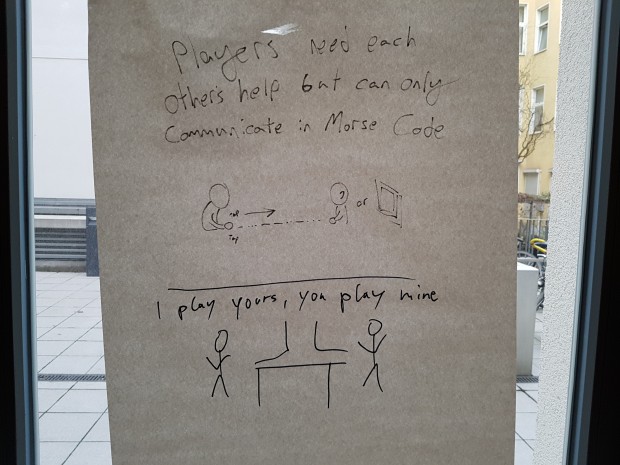 Players need each
others help but can only
Communicate in Morse Code
or
I play yours, you play mine